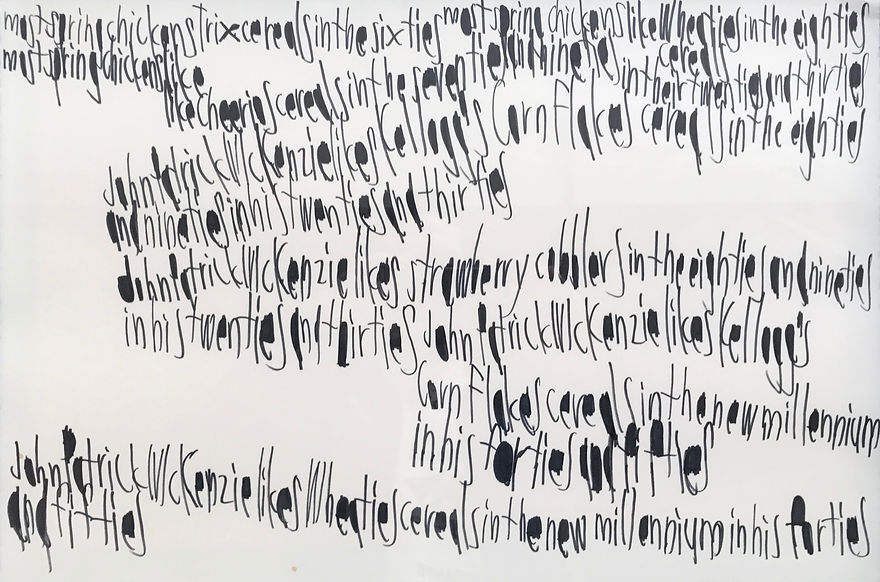 most spring chickens Trix cereals in the sixties most spring chickens like Wheaties in the eighties
most spring chickens like and nineties cereals
like Cheerios cereals in the seventies in their twenties and thirties
John Patrick McKenzie likes Kellogg's Corn Flakes cereals in the eighties
and nineties in his twenties and thirties
John Patrick McKenzie likes strawberry cobblers in the eighties and nineties
in his twenties and thirties John Patrick McKenzie likes Kellogg's
Corn Flakes cereals in the new millennium
in his forties and fifties
John Patrick McKenzie likes Wheaties cereals in the new millennium in his forties
and fifties